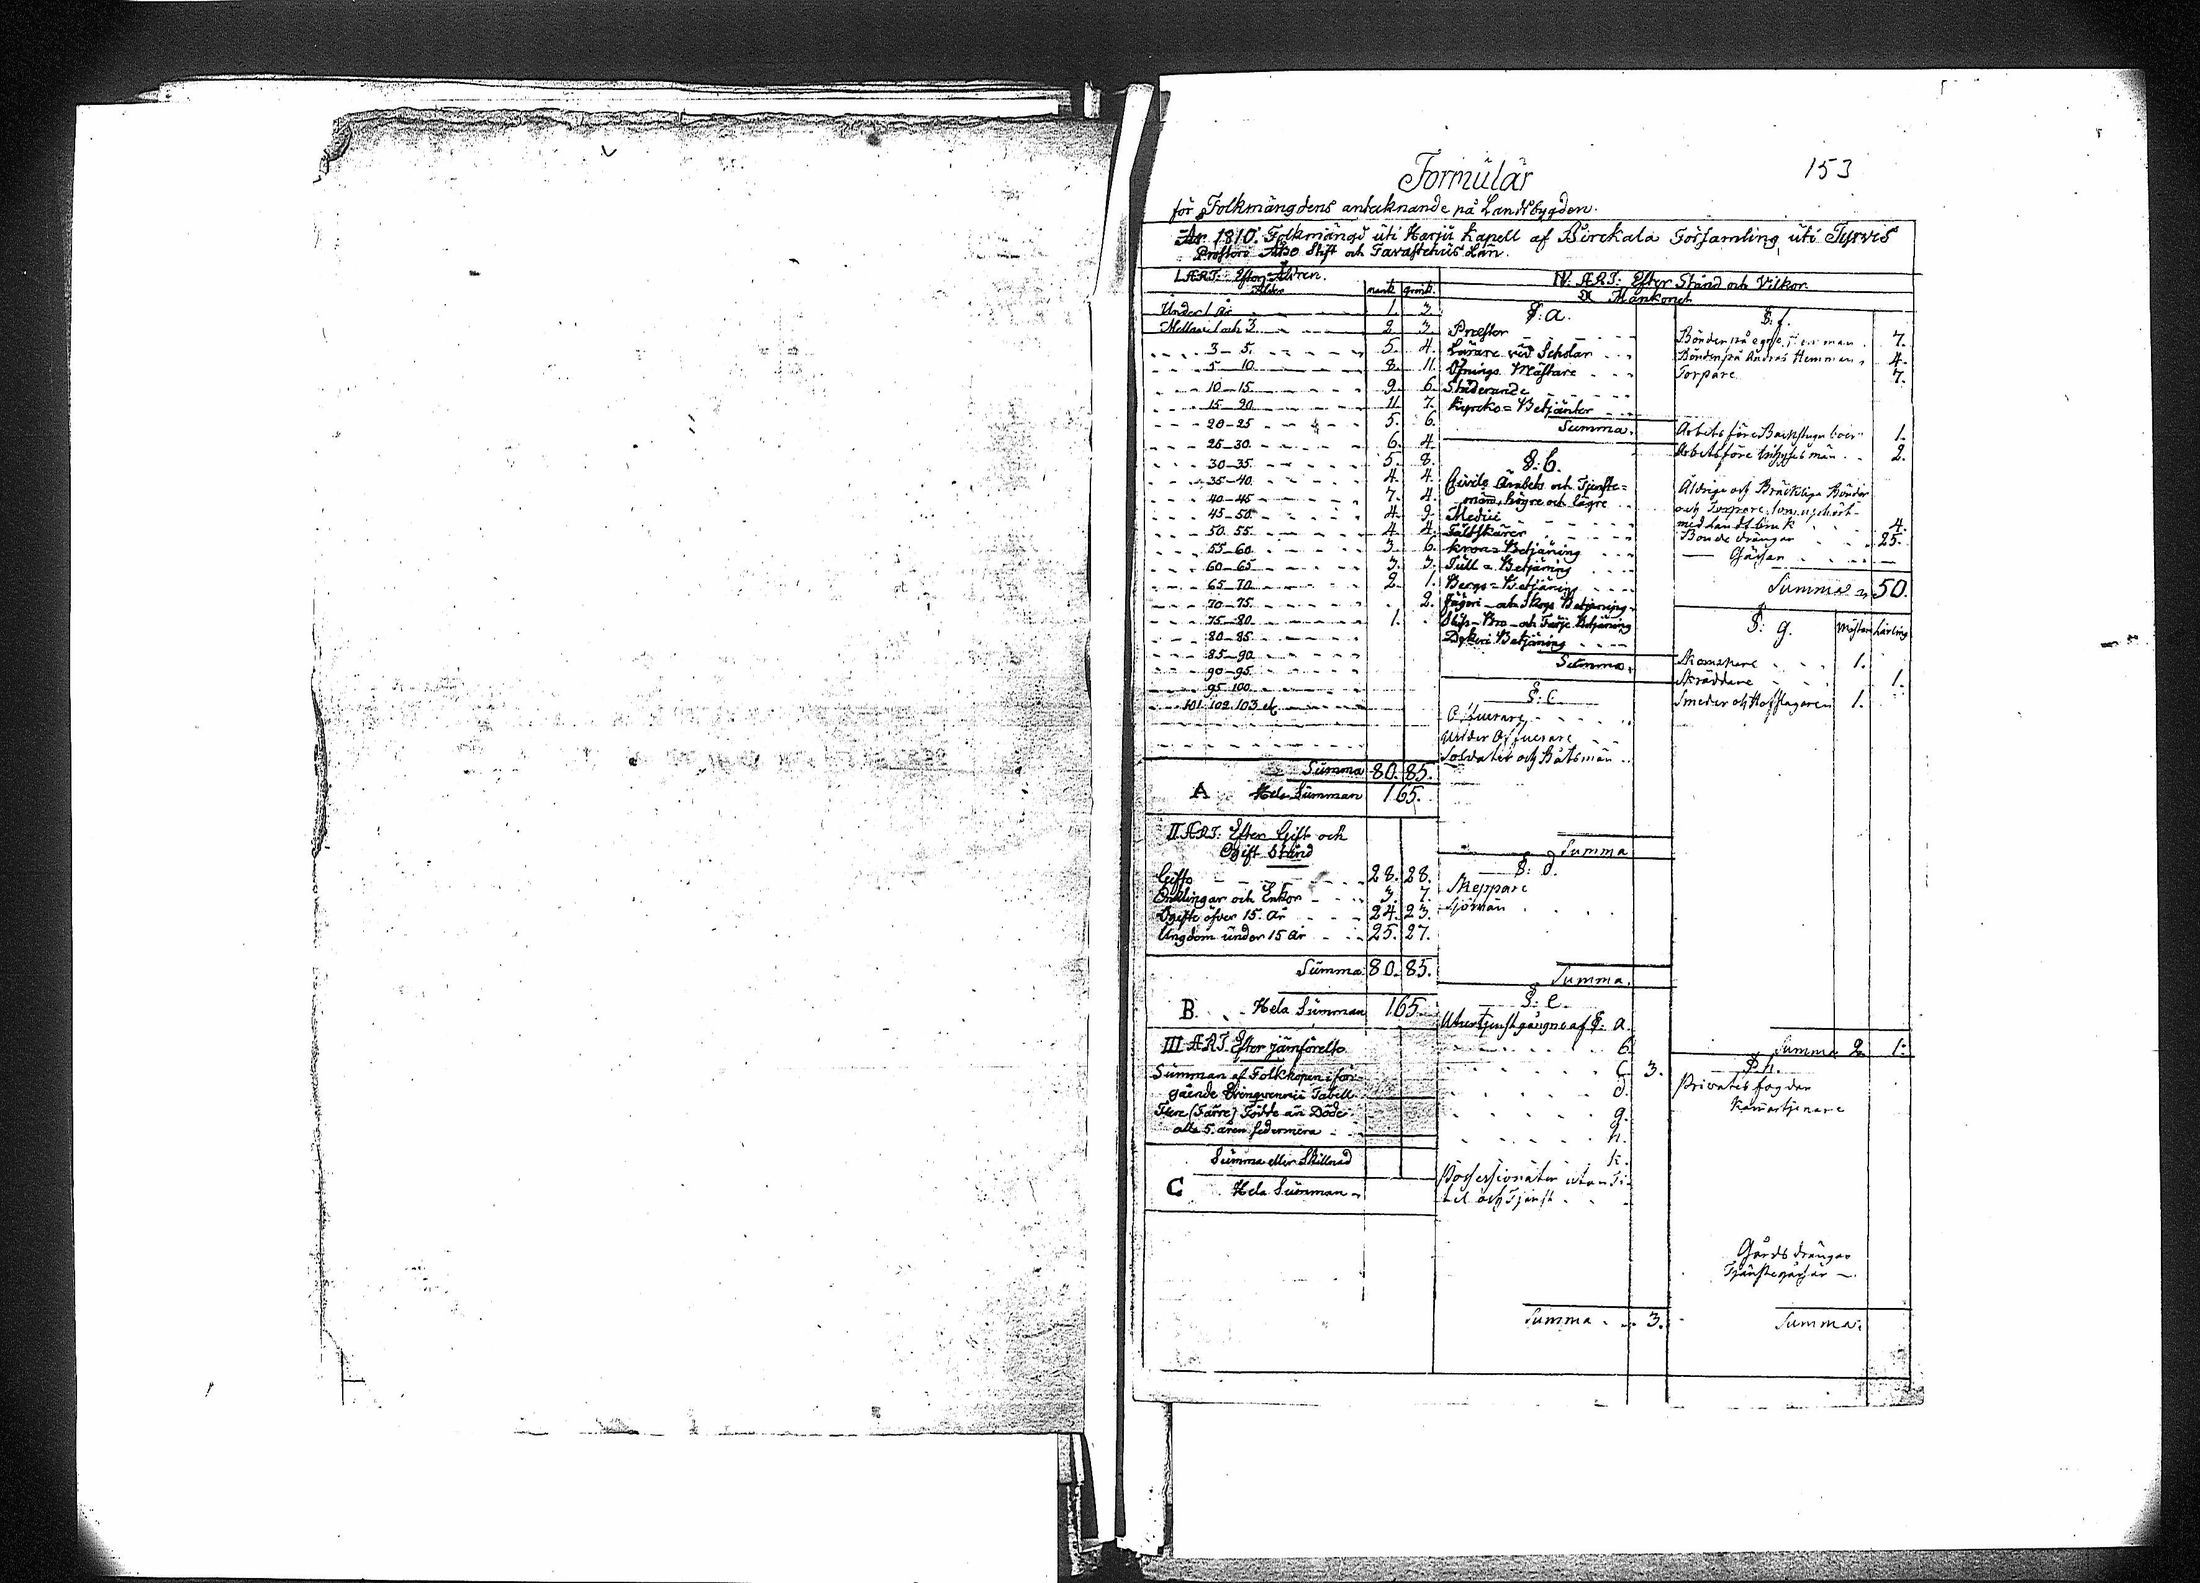 Formulär
153
för Folkmängdens antecknande på Landsbygden.
År 1810. Folkmängd uti Harju Kapell af Birckala Församling uti Tyrvis
Prosteri Åbo Stift och Tavastehus Län.
I. ART. Efter Åldren.
Ålder mank. qvink.
Under 1 år 1. 2.
Mellan 1 och 3. 2. 3.
3-5. 5. 4.
5-10 8. 11.
10-15 9. 6.
15-20 11. 7.
20-25 5. 6.
25-30. 6. 4.
30-35. 5. 8.
35-40. 4. 4.
40-45 7. 4.
45-50. 4. 9.
50-55. 4. 4.
55-60. 3. 6.
60-65 3. 3.
65-70 2. 1.
70-75. . 2.
75-80 1. .
80-85.
85-90.
90-95.
95-100.
101. 102. 103 &c
Summa 80. 85.
A Hela Summan 165.
II ART. Efter Gift och
Ogift Stånd
Gifte 28. 28.
Enklingar och Enkor 3. 7.
Ogifte öfver 15. År 24. 23.
Ungdom under 15 år 25. 27.
Summa 80. 85.
B. Hela Summan 165.
III ART. Efter jämförelse
Summan af Folkhopen i före-
gående Tabell
Flere (Färre) Födde än Döde
alla 5. åren sedermera
Summa eller Skillnad
C Hela Summan
IV. ART. Efter Stånd och Vilkor.
Mankönet
§: a.
Præster
Lärare vid Scholar
Öfnings Mästare
Studerande
Kyrcko-Betjänter
Summa.
§: b.
Civile Ämbets och Tjenste-
män, högre och lägre
Medici
Fältskärer
Kron-Betjäning
Tull-Betjäning
Bergs-Betjäning
Jägeri- och Skogs Betjäning
Slup-Bro- och Färje Betjäning
Dykeri Betjäning
Summa.
§: c.
Officerare
Under Officerare
Soldater och Båtsmän
Summa
§: d.
Skeppare
Sjömän
Summa.
§: e.
Utur tjenst gångne af §: a.
b.
c. 3.
d.
g.
h.
k.
Possessionater utan Ti-
tel och Tjenst
Summa 3.
§: f.
Bönder på egne hemman 7.
Bönder på Andras Hemman 4.
Torpare 7.
Arbetsföre Backstugu boer 1.
Arbetsföre Inhyses män 2.
Åldrige och Bräcklige Bönder
och Torpare, som uphört
med Landtbruk 4.
Bonde drängar 25.
Gåssar
Summa 50.
§: g. Mästare Lärling
Skomakare 1.
Skräddare 1.
Smeder och Hofslagare 1.
Summa 2. 1.
§: h.
Privates fogdar
Kammartjenare
Gårds drängar
Tjänstegåssar
Summa.